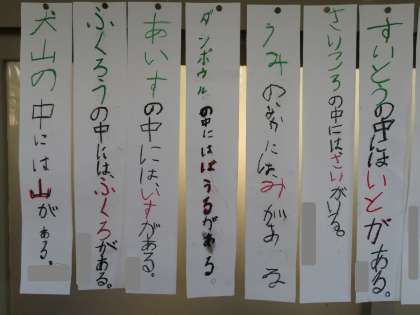 すいとうの中にはいとがある。
さいころの中には、さいがいる。
うみのなかには、みがある
ダンボウルの中にはぼうるがある。
あいすの中には、いすがある。
ふくろうの中には、ふくろがある。
犬山の中には山がある。